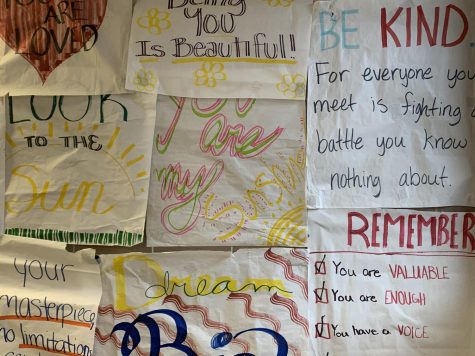 YOU ARE
LOVED
Being
YOU
Is Beautiful!
BE KIND.
For everyone you
meet is fighting a
battle you know
nothing about.
LOOK
TO THE
Sun
You
are
my
Sunsh
REMEMBER
You are VALUABLE
You are ENOUGH
You have a VOICE
your
masterpiece,
no limitation
Dream
Big